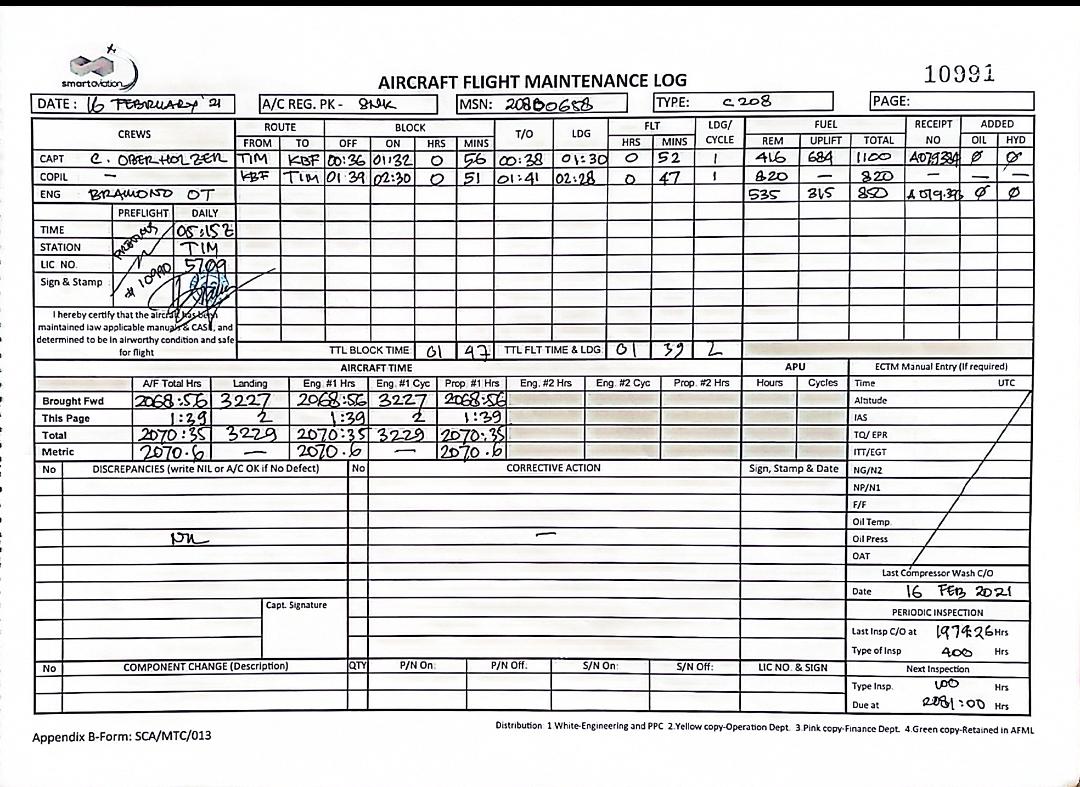 smartaviation
10991
AIRCRAFT FLIGHT MAINTENANCE LOG
DATE : 16 FEBRUARY '21 A/C REG. PK - SNK MSN: 208B0658 TYPE: C 208 PAGE:
CREWS ROUTE BLOCK T/O LDG FLT LDG/ CYCLE FUEL RECEIPT NO ADDED
FROM TO OFF ON HRS MINS HRS MINS REM UPLIFT TOTAL OIL HYD
CAPT C. OBERHOLZER TIM KBF 00:36 01:32 0 56 00:38 01:30 0 52 1 416 684 1100 Ø Ø
COPIL — KBF TIM 01:39 02:30 0 51 01:41 02:28 0 47 1 820 — 820 — — —
ENG BRAMOND OT 535 315 850 Ø Ø
PREFLIGHT DAILY
TIME 05:15Z
STATION TIM
LIC NO. 5709
Sign & Stamp # 10990
I hereby certify that the aircraft has been
maintained iaw applicable manuals & CASR, and
determined to be in airworthy condition and safe
for flight
TTL BLOCK TIME 01 47 TTL FLT TIME & LDG 01 39 2
AIRCRAFT TIME APU ECTM Manual Entry (If required)
A/F Total Hrs Landing Eng. #1 Hrs Eng. #1 Cyc Prop. #1 Hrs Eng. #2 Hrs Eng. #2 Cyc Prop. #2 Hrs Hours Cycles Time UTC
Brought Fwd 2068:56 3227 2068:56 3227 2068:56 Altitude
This Page 1:39 2 1:39 2 1:39 IAS
Total 2070:35 3229 2070:35 3229 2070:35 TQ/ EPR
Metric 2070.6 — 2070.6 — 2070.6 ITT/EGT
No DISCREPANCIES (write NIL or A/C OK if No Defect) No CORRECTIVE ACTION Sign, Stamp & Date NG/N2
NP/N1
F/F
Oil Temp.
NIL — Oil Press
OAT
Last Compressor Wash C/O
Date 16 FEB 2021
Capt. Signature
PERIODIC INSPECTION
Last Insp C/O at 1974:26 Hrs
Type of Insp 400 Hrs
No COMPONENT CHANGE (Description) QTY P/N On: P/N Off: S/N On: S/N Off: LIC NO. & SIGN Next Inspection
Type Insp. 100 Hrs
Due at 2081:00 Hrs
Distribution: 1 White-Engineering and PPC 2.Yellow copy-Operation Dept. 3.Pink copy-Finance Dept. 4.Green copy-Retained in AFML
Appendix B-Form: SCA/MTC/013